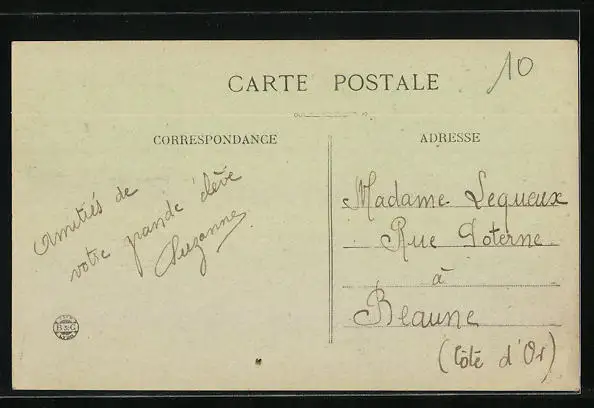 10
CARTE POSTALE
CORRESPONDANCE
ADRESSE
Amitiés de
votre grande élève
Suzanne
Madame Lequeux
Rue Poterne
à
Beaune
(Côte d'Or)
B&G